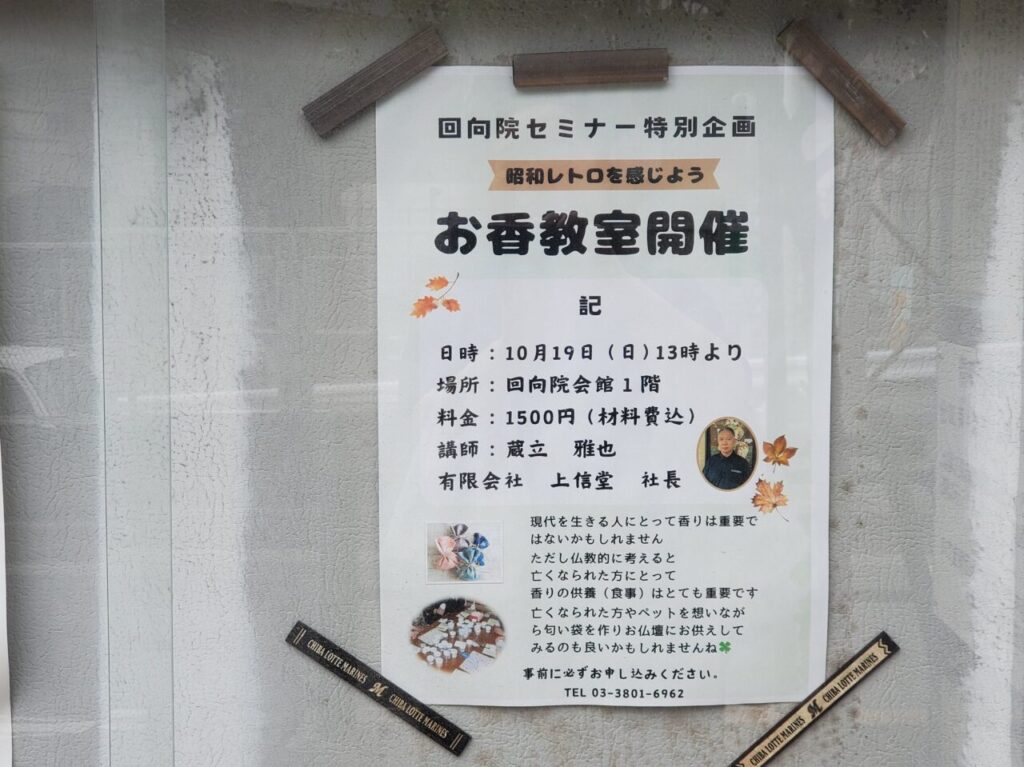 回向院セミナー特別企画
昭和レトロを感じよう
お香教室開催
記
日時：10月19日（日）13時より
場所：回向院会館１階
料金：1500円（材料費込）
講師：蔵立　雅也
有限会社　上信堂　社長
現代を生きる人にとって香りは重要で
はないかもしれません
ただし仏教的に考えると
亡くなられた方にとって
香りの供養（食事）はとても重要です
亡くなられた方やペットを想いなが
ら匂い袋を作りお仏壇にお供えして
みるのも良いかもしれませんね🍀
事前に必ずお申し込みください。
TEL 03-3801-6962
CHIBA LOTTE MARINES M CHIBA LOTTE MARINES
CHIBA LOTTE MARINES M CHIBA LOTTE MARINES